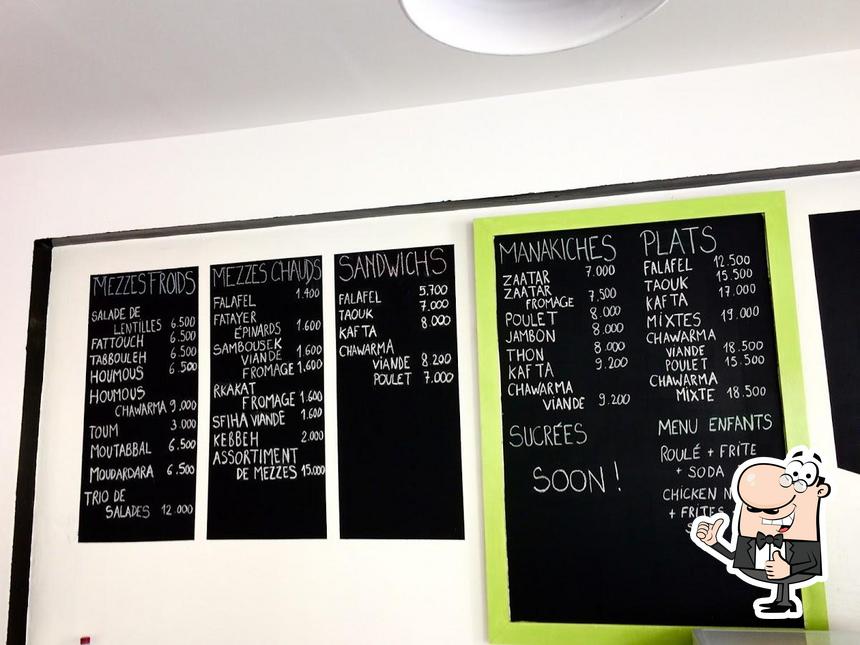 MEZZES FROIDS
SALADE DE
LENTILLES 6.500
FATTOUCH 6.500
TABBOULEH 6.500
HOUMOUS 6.500
HOUMOUS
CHAWARMA 9.000
TOUM 3.000
MOUTABBAL 6.500
MOUDARDARA 6.500
TRIO DE
SALADES 12.000
MEZZES CHAUDS
FALAFEL 1.400
FATAYER
ÉPINARDS 1.600
SAMBOUSEK
VIANDE 1.600
FROMAGE 1.600
RKAKAT
FROMAGE 1.600
SFIHA VIANDE 1.600
KEBBEH 2.000
ASSORTIMENT
DE MEZZES 15.000
SANDWICHS
FALAFEL 5.700
TAOUK 7.000
KAFTA 8.000
CHAWARMA
VIANDE 8.200
POULET 7.000
MANAKICHES
ZAATAR 7.000
ZAATAR
FROMAGE 7,500
POULET 8.000
JAMBON 8.000
THON 8.000
KAFTA 9.200
CHAWARMA
VIANDE 9.200
SUCRÉES
SOON!
PLATS
FALAFEL 12.500
TAOUK 15.500
KAFTA 17.000
MIXTES 19.000
CHAWARMA
VIANDE 18.500
POULET 15.500
CHAWARMA
MIXTE 18.500
MENU ENFANTS
ROULÉ + FRITE
+ SODA
CHICKEN
+ FRITES